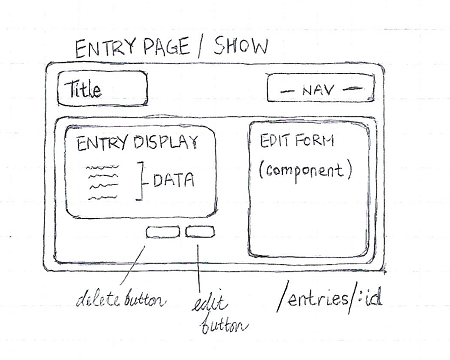 ENTRY PAGE / SHOW
Title
— NAV —
ENTRY DISPLAY
DATA
EDIT FORM
(component)
delete button
edit
button
/entries/:id